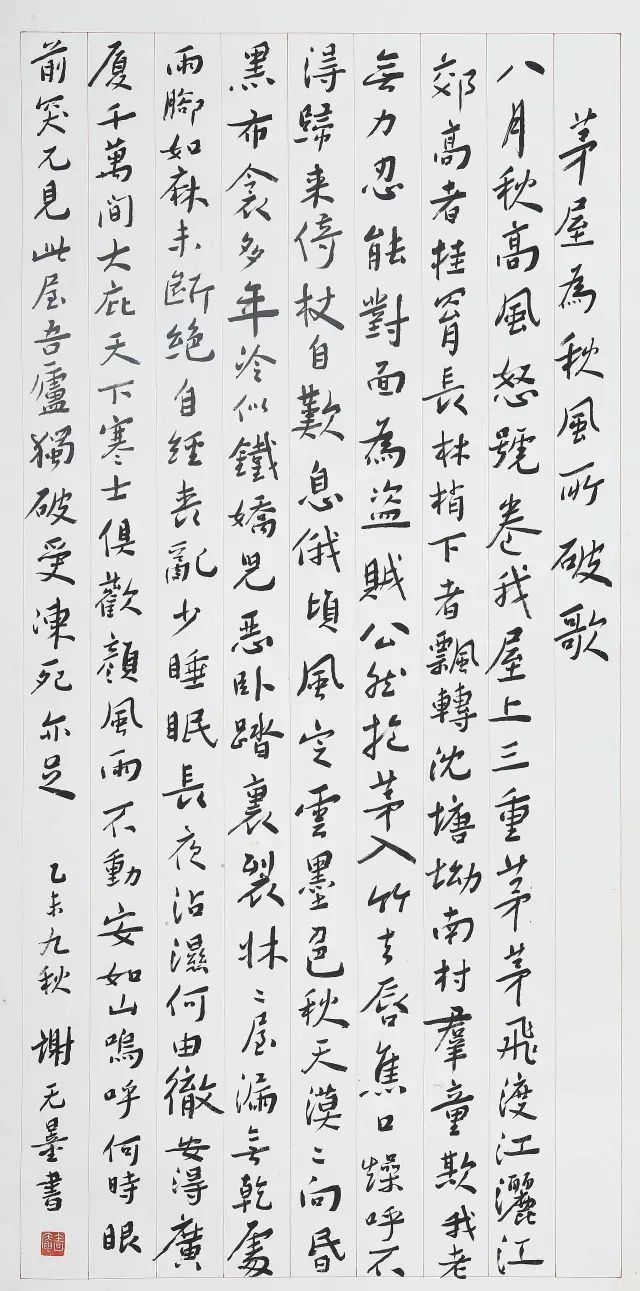 茅屋為秋風所破歌
八月秋高風怒號卷我屋上三重茅茅飛渡江灑江
郊高者挂罥長林梢下者飄轉沈塘坳南村羣童欺我老
無力忍能對面為盜賊公然抱茅入竹去唇焦口燥呼不
得歸来倚杖自歎息俄頃風定雲墨色秋天漠〻向昏
黑布衾多年冷似鐵嬌兒惡卧踏裏裂牀〻屋漏無乾處
雨腳如麻未斷絶自經喪亂少睡眠長夜沾濕何由徹安得廣
厦千萬間大庇天下寒士俱歡顏風雨不動安如山嗚呼何時眼
前突兀見此屋吾廬獨破受凍死亦足 乙未九秋 謝无墨書